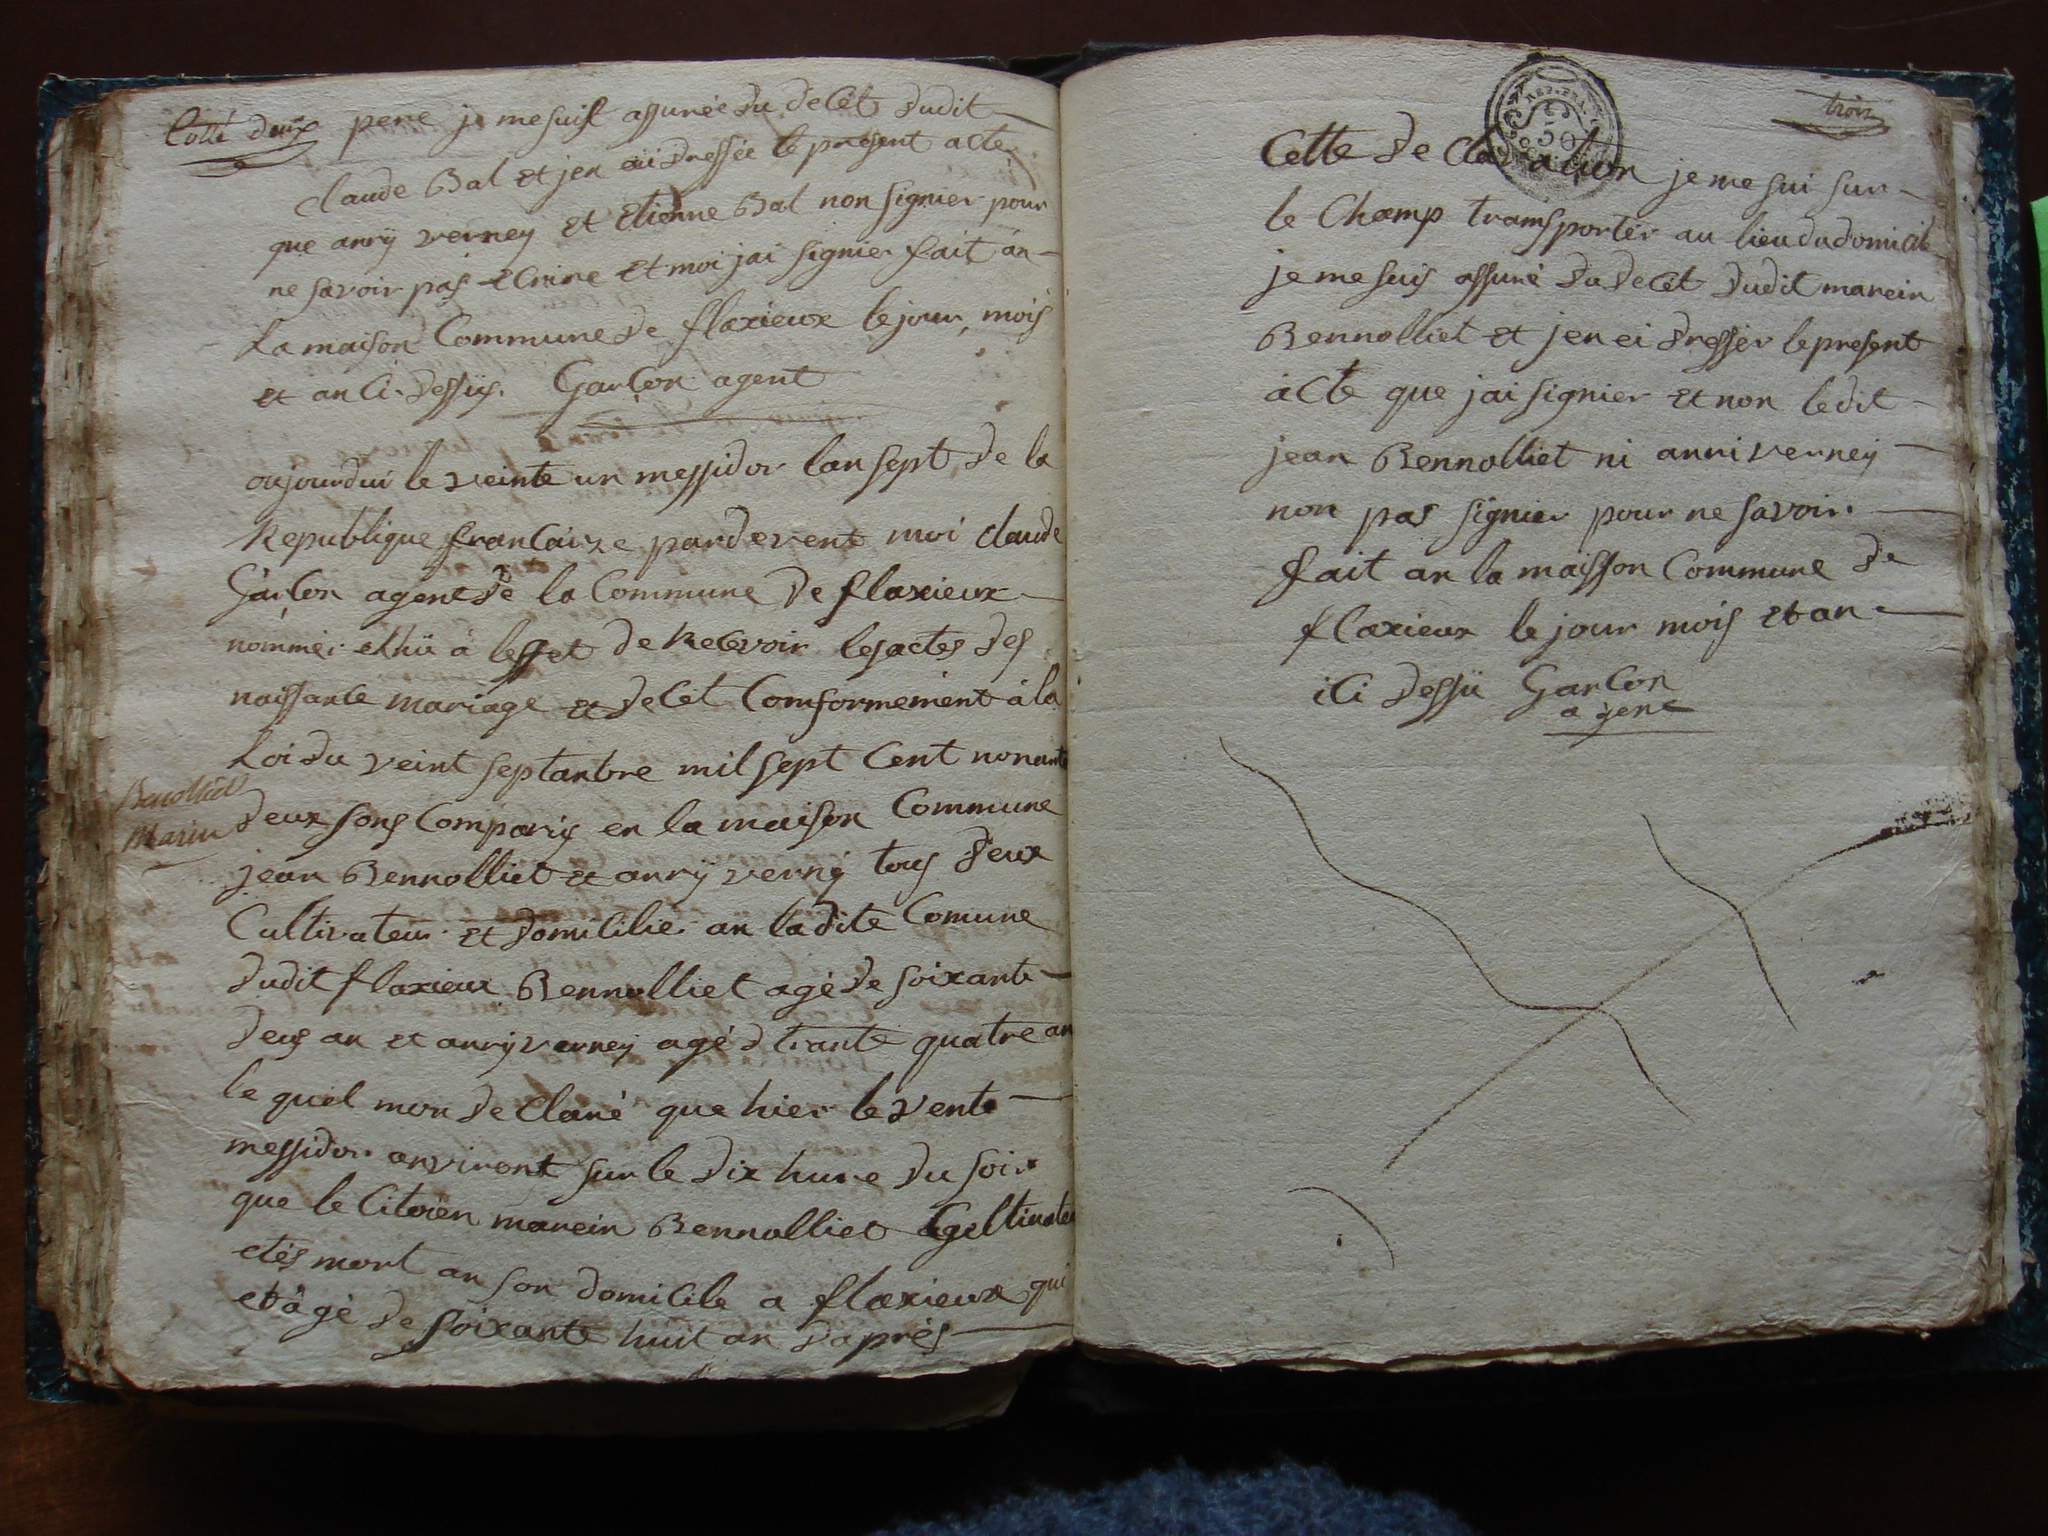 Cotté deux
pere je me suis assurée du decét dudit
Claude Bal et jen ai dressée le present acte
que anrÿ verney et Etienne Bal non signier pour
ne savoir pas ecrire et moi jai signier fait an
La maison Commune de flaxieux le jour, mois
et an Ci-dessüs. Garçon agent
aujourdui le veinte un messidor lan sept de la
Republique francaize pardevent moi claude
Garçon agent de la Commune De flaxieux
nommér elhü a leffet de Recevoir les actes des
naissance mariage et decét Comformement à la
Loi du veint septanbre mil sept Cent nonante
Benolliet
Marin
deux sons Comparis en la maison Commune
jean Bennolliet et anrÿ vernÿ tous deux
Cultivateur et domicilier an la dite Comune
dudit flaxieux Bennolliet agé de soixante
deus an et anrÿ verney agé d trante quatre an
le quel mon declaré que hier le vente
messidor anviront sur le dix hure du soir
que le Citoïen marein Bennolliet Cultivateu
etés mort an son domicile a flaxieux qui
et àgé de soixante huit an daprés
trois
REP. FRA
50
Cette declaration je me sui sur
le Champ transportér au lieu du domicile
je me suis assuré du decét dudit marein
Bennolliet et jen ei dressér le present
acte que jai signier et non ledit
jean Bennolliet ni anri verney
non pas signier pour ne savoir.
fait an la maisson Commune de
flaxieux le jour mois et an
iCi dessü Garçon
agent